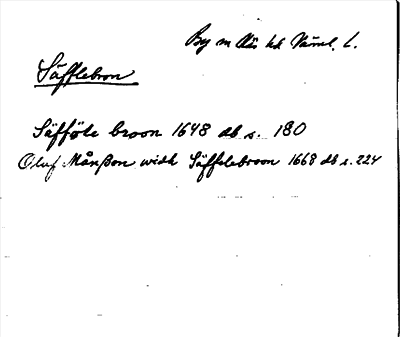 By m Näs hd Värml. L.
Säfflebron
Säfföle broon 1648 db s. 180
Oluf Månßon widh Säffelebroon 1668 db s. 224